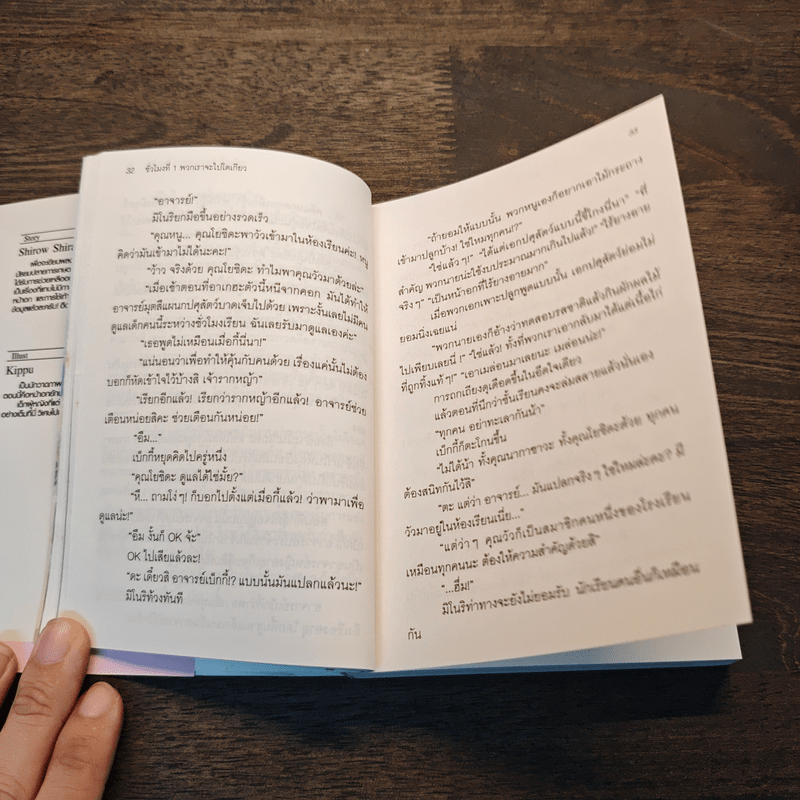 Story
Shirow Shira
เพื่อจะเขียนผล
ได้รับการช่วยเหลือ
Illust
Kippu
เป็นนักวาดภาพ
32 ชั่วโมงที่ 1 พวกเราจะไปใดเกียว
"อาจารย์!"
มิโนริยกมือขึ้นอย่างรวดเร็ว
"คุณหนู... คุณโยชิดะพาวัวเข้ามาในห้องเรียนค่ะ! หนู
คิดว่ามันเข้ามาไม่ได้นะคะ!"
"ว้าว จริงด้วย คุณโยชิดะ ทำไมพาคุณวัวมาด้วยล่ะ"
"เมื่อเช้าตอนที่อาเกฮะตัวนี้หนีจากคอก มันได้ทำให้
อาจารย์มุตสึแผนกปศุสัตว์บาดเจ็บไปด้วย เพราะงั้นเลยไม่มีคน
ดูแลเด็กคนนี้ระหว่างชั่วโมงเรียน ฉันเลยรับมาดูแลเองค่ะ"
"เธอพูดไม่เหมือนเมื่อกี้นี่นา!"
"แน่นอนว่าเพื่อทำให้คุ้นกับคนด้วย เรื่องแค่นั้นไม่ต้อง
บอกก็หัดเข้าใจไว้บ้างสิ เจ้ารากหญ้า"
"เรียกอีกแล้ว! เรียกว่ารากหญ้าอีกแล้ว! อาจารย์ช่วย
เตือนหน่อยสิคะ ช่วยเตือนกันหน่อย!"
"อืม..."
เบ็กกี้หยุดคิดไปครู่หนึ่ง
"คุณโยชิดะ ดูแลได้ใช่มั้ย?"
"หึ... ถามโง่ๆ! ก็บอกไปตั้งแต่เมื่อกี้แล้ว! ว่าพามาเพื่อ
ดูแลน่ะ!"
"อืม งั้นก็ OK จ้ะ"
OK ไปเสียแล้วล่ะ!
"ดะ เดี๋ยวสิ อาจารย์เบ็กกี้!? แบบนั้นมันแปลกแล้วนะ!"
มิโนริท้วงทันที
33
"ถ้ายอมให้แบบนั้น พวกหนูเองก็อยากเอาไม้กระถาง
เข้ามาปลูกบ้าง! ใช่ไหมทุกคน!?"
"ใช่แล้ว ๆ!" "ได้แต่เอกปศุสัตว์แบบนี้ขี้โกงนี่นา" "ที่
สำคัญ พวกนายน่ะใช้งบประมาณมากเกินไปแล้ว!" "ไร้ยางอาย
จริง ๆ" "เป็นหน้าอกที่ไร้ยางอายมาก"
เมื่อพวกเอกเพาะปลูกพูดแบบนั้น เอกปศุสัตว์ย่อมไม่
ยอมนิ่งเฉยแน่
"พวกนายเองก็อ้างว่าทดสอบรสชาติแล้วกินผักผลไม้
ไปเพียบเลยนี่ !" "ใช่แล้ว! ทั้งที่พวกเราเอากลับมาได้แต่เนื้อไก่
ที่ถูกทิ้งแท้ ๆ!" "เอาเมล่อนมาเลยนะ เมล่อนน่ะ!"
การถกเถียงดุเดือดขึ้นในอึดใจเดียว
แล้วตอนที่นึกว่าชั้นเรียนคงจะล่มสลายแล้วนั่นเอง
"ทุกคน อย่าทะเลากันน้า"
เบ็กกี้ก็ตะโกนขึ้น
"ไม่ได้น้า ทั้งคุณนากาซาวะ ทั้งคุณโยชิดะด้วย ทุกคน
ต้องสนิทกันไว้สิ"
"ตะ แต่ว่า อาจารย์... มันแปลกจริง ๆ ใช่ไหมล่ะคะ? มี
วัวมาอยู่ในห้องเรียนเนี่ย..."
"แต่ว่า ๆ คุณวัวก็เป็นสมาชิกคนหนึ่งของโรงเรียน
เหมือนทุกคนนะ ต้องให้ความสำคัญด้วยสิ"
"...ฮึ่ม!"
มิโนริท่าทางจะยังไม่ยอมรับ นักเรียนคนอื่นก็เหมือน
กัน